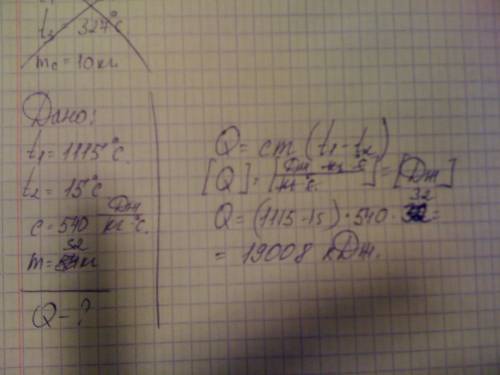 t₂ = 327°C
m_c = 10 кг
Дано:
t₁ = 1115°C.
t₂ = 15°C
c = 540 Дж/кг °C.
m = 32 кг
Q - ?
Q = cm (t₁ - t₂)
[Q] = [Дж · кг · °C / кг · °C] = [Дж]
Q = (1115 - 15) · 540 · 32 =
= 19008 кДж.